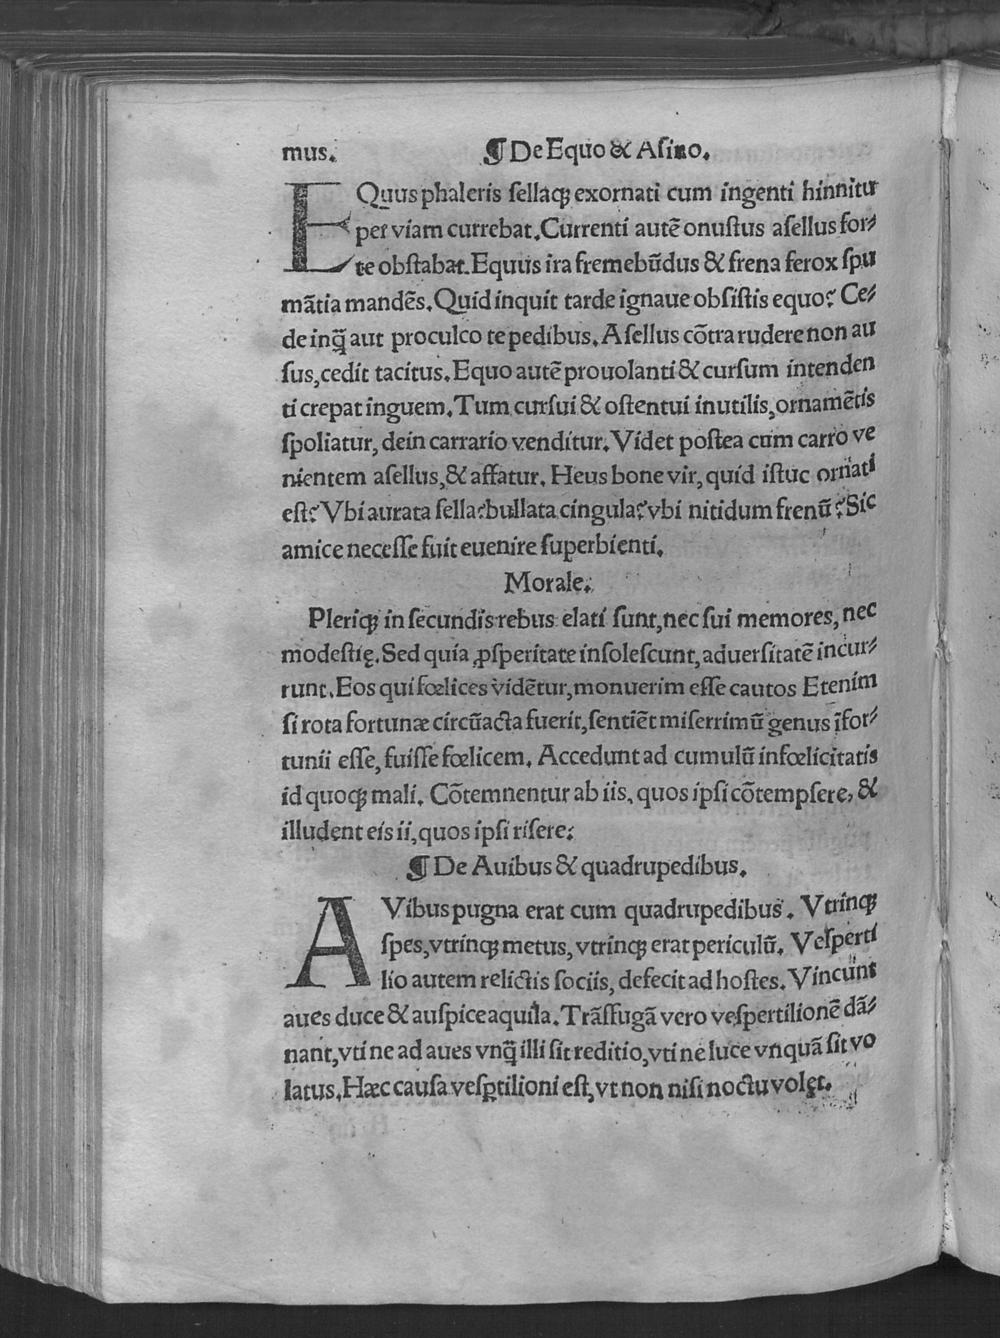 mus. ¶ De Equo & Aſino.
EQuus phaleris ſellaqꝫ exornati cum ingenti hinnitu
per viam currebat. Currenti autē onuſtus aſellus for⸗
te obſtabat. Equus ira fremebūdus & frena ferox ſpu
mātia mandēs. Quid inquit tarde ignaue obſiſtis equo? Ce⸗
de inq̄ aut proculco te pedibus. Aſellus cōtra rudere non au
ſus, cedit tacitus. Equo autē prouolanti & curſum intenden
ti crepat inguem. Tum curſui & oſtentui inutilis, ornamētis
ſpoliatur, dein carrario venditur. Videt poſtea cum carro ve
nientem aſellus, & affatur. Heus bone vir, quid iſtuc ornati
eſt? Vbi aurata ſella? bullata cingula? vbi nitidum frenū? Sic
amice neceſſe fuit euenire ſuperbienti.
Morale.
Pleriqꝫ in ſecundis rebus elati ſunt, nec ſui memores, nec
modeſtię. Sed quia ꝓſperitate inſoleſcunt, aduerſitatē incur⸗
runt. Eos qui fœlices vidētur, monuerim eſſe cautos Etenim
ſi rota fortunæ circūacta fuerit, ſentiēt miſerrimū genus īfor⸗
tunii eſſe, fuiſſe fœlicem. Accedunt ad cumulū infœlicitatis
id quoqꝫ mali. Cōtemnentur ab iis, quos ipſi cōtempſere, &
illudent eis ii, quos ipſi riſere:
¶ De Auibus & quadrupedibus.
AVibus pugna erat cum quadrupedibus. Vtrinqꝫ
ſpes, vtrinqꝫ metus, vtrinqꝫ erat periculū. Veſperti
lio autem relictis ſociis, defecit ad hoſtes. Vincunt
aues duce & auſpice aquila. Trāſfugā vero veſpertilionē dā⸗
nant, vti ne ad aues vnq̄ illi ſit reditio, vti ne luce vnquā ſit vo
latus. Hæc cauſa veſꝑtilioni eſt, vt non niſi noctu volęt.